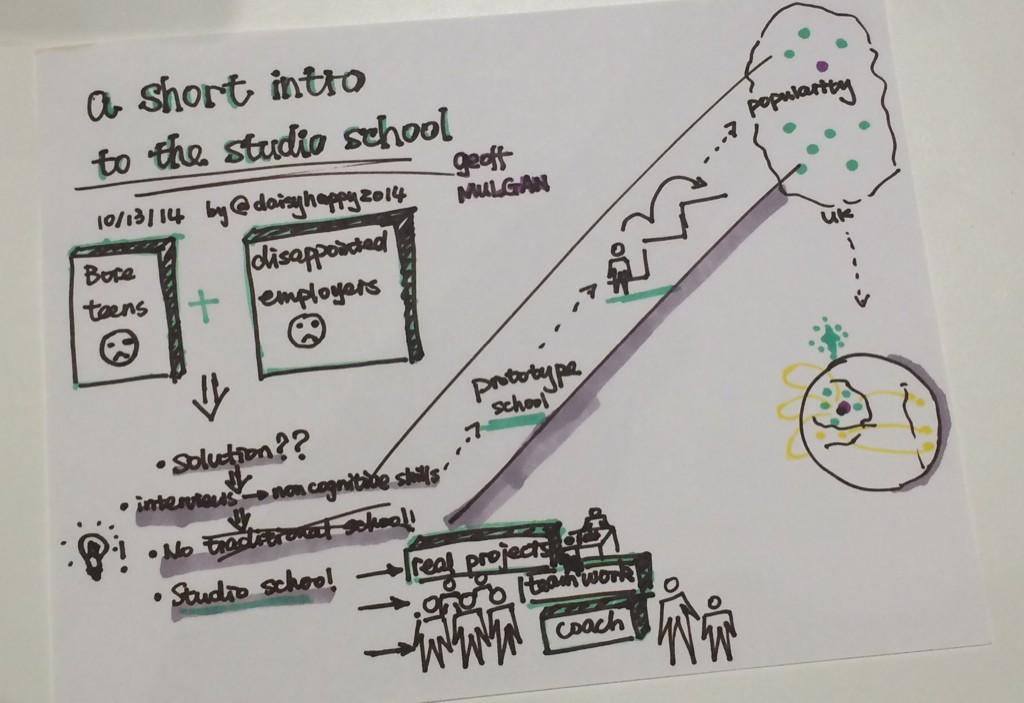 a short intro
to the studio school
geoff
MULGAN
10/13/14 by @daisyhappy2014
Bore
teens
+
disappointed
employers
• solution??
• interviews → non cognitive skills
• No traditional school!
• Studio school!
real projects
teamwork
coach
prototype
school
popularity
UK